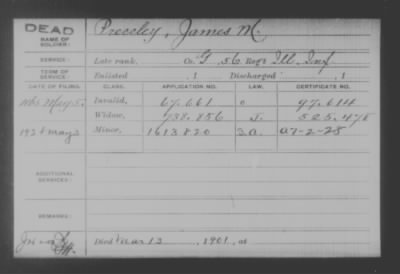 DEAD
NAME OF SOLDIER: Pressley, James M.
SERVICE: Late rank, Co. G, 56 Reg't Ill. Inf
TERM OF SERVICE: Enlisted , 1 Discharged , 1
DATE OF FILING. CLASS. APPLICATION NO. LAW. CERTIFICATE NO.
May 5. Invalid, 67.661 o 97.614
Widow, 738.856 J. 525.475
May 3 Minor, 1613820 S.a. A7-2-28
ADDITIONAL SERVICES:
REMARKS:
Died Mar 13 , 1901, at